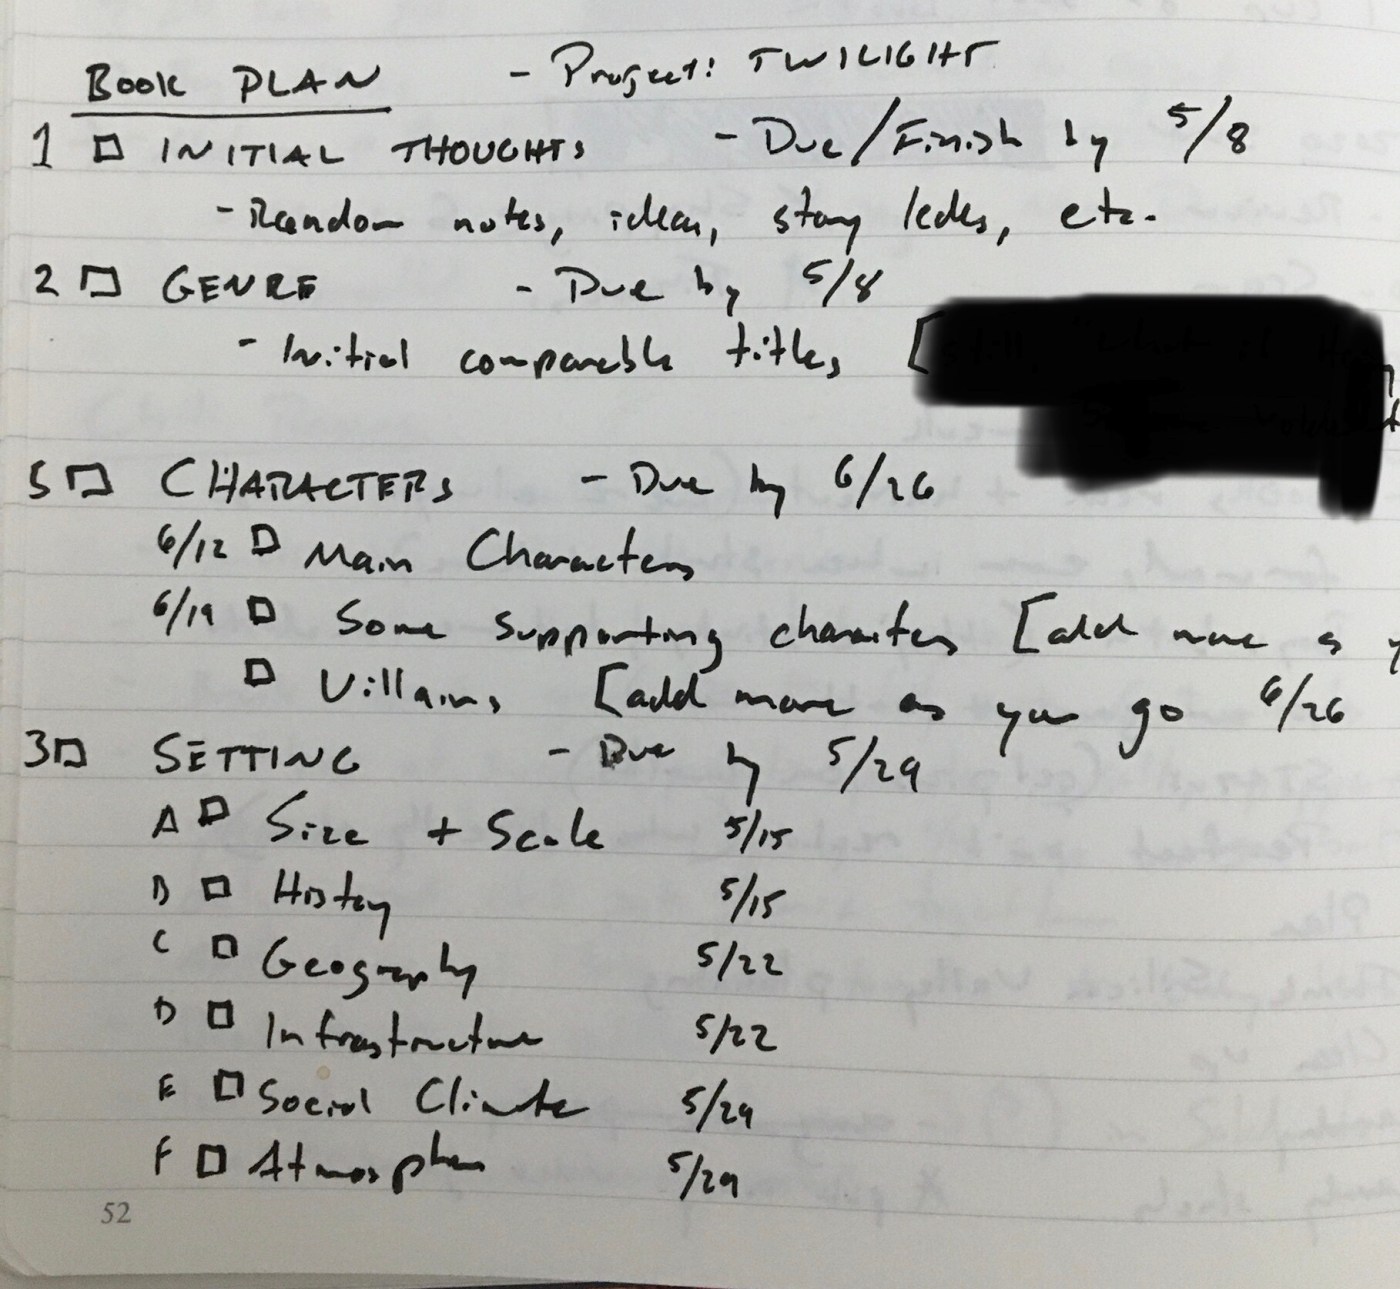 BOOK PLAN - Project: TWILIGHT
1 INITIAL THOUGHTS - Due/Finish by 5/8
- Random notes, ideas, story ledes, etc.
2 GENRE - Due by 5/8
- Initial comparable titles [
5 CHARACTERS - Due by 6/26
6/12 Main Characters
6/19 Some supporting characters [add more as y
Villains [add more as you go 6/26
3 SETTING - Due by 5/29
A Size + Scale 5/15
B History 5/15
C Geography 5/22
D Infrastructure 5/22
E Social Climate 5/29
F Atmosphere 5/29
52